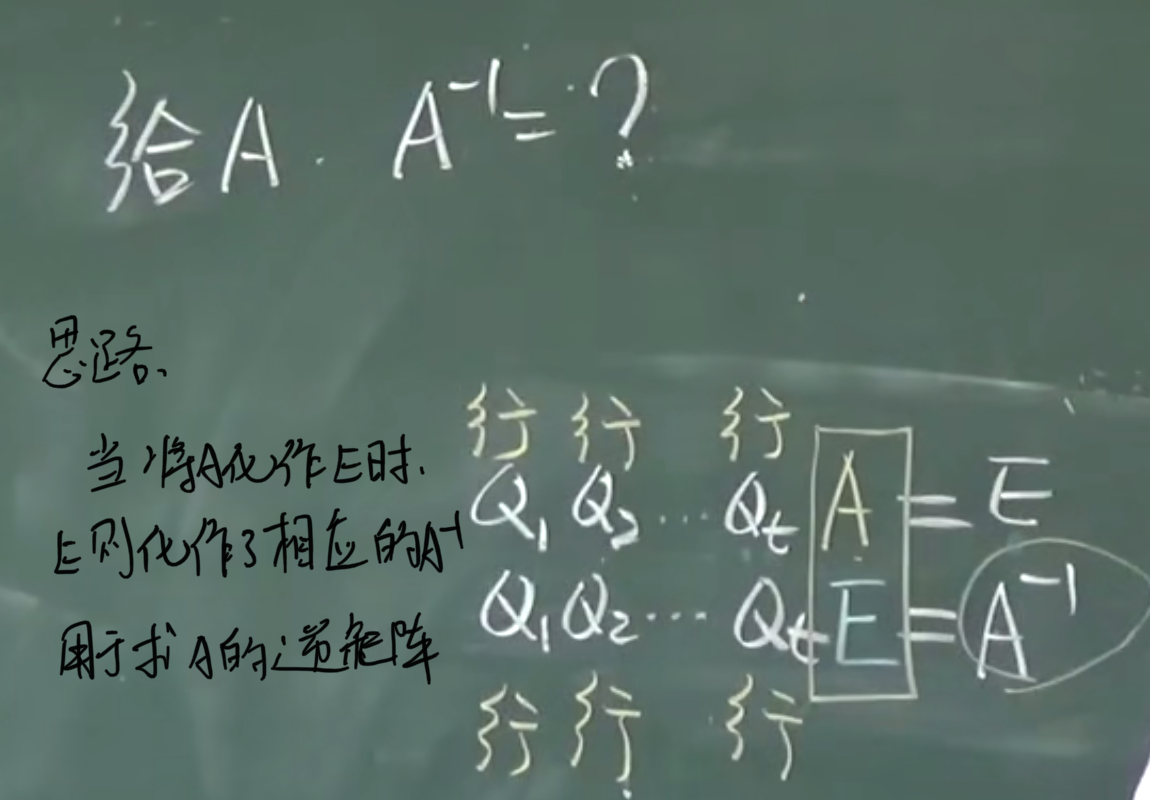 给A. A⁻¹=?
思路、
当将A化作E时.
E则化作了相应的A⁻¹
用于求A的逆矩阵
行 行 行
Q₁ Q₂ … Qt A = E
Q₁ Q₂ … Qt E = A⁻¹
行 行 行